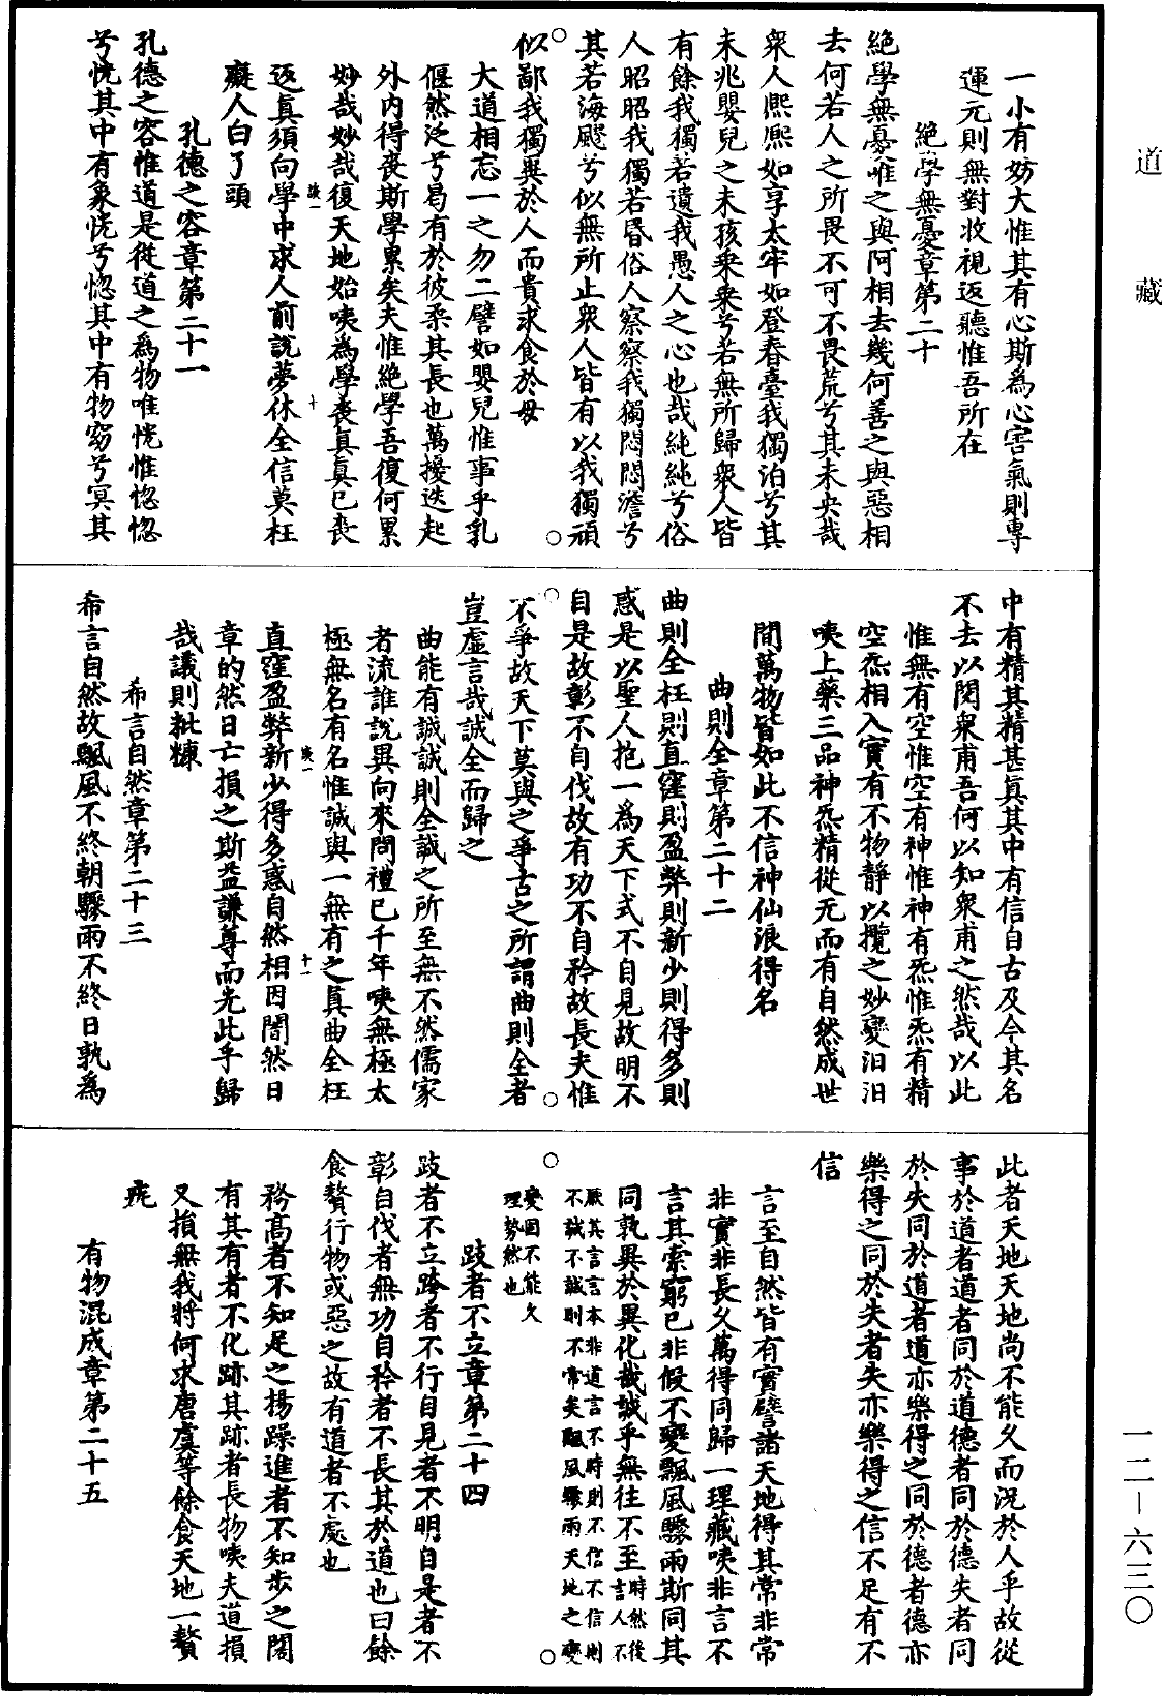 道藏
一小有妨大惟其有心斯為心害氣則專
運元則無對收視返聽惟吾所在
絕學無憂章第二十
絕學無憂唯之與阿相去幾何善之與惡相
去何若人之所畏不可不畏荒兮其未央哉
衆人熙熙如享太牢如登春臺我獨泊兮其
未兆嬰兒之未孩乘乘兮若無所歸衆人皆
有餘我獨若遺我愚人之心也哉純純兮俗
人昭昭我獨若昏俗人察察我獨悶悶澹兮
其若海飂兮似無所止衆人皆有以我獨頑
似鄙我獨異於人而貴求食於母
大道相忘一之勿二譬如嬰兒惟事乎乳
偃然泛兮曷有於彼柔其長也萬擾迭起
外內得喪斯學累矣夫惟絕學吾復何累
妙哉妙哉復天地始咦為學喪真真已喪
返真須向學中求人前說夢休全信莫枉
癡人白了頭
孔德之容章第二十一
孔德之容惟道是從道之為物唯恍惟惚惚
兮恍其中有象恍兮惚其中有物窈兮冥其
中有精其精甚真其中有信自古及今其名
不去以閱衆甫吾何以知衆甫之然哉以此
惟無有空惟空有神惟神有炁惟炁有精
空炁相入實有不物靜以攬之妙變汩汩
咦上藥三品神炁精從无而有自然成世
間萬物皆如此不信神仙浪得名
曲則全章第二十二
曲則全枉則直窪則盈弊則新少則得多則
惑是以聖人抱一為天下式不自見故明不
自是故彰不自伐故有功不自矜故長夫惟
不爭故天下莫與之爭古之所謂曲則全者
豈虛言哉誠全而歸之
曲能有誠誠則全誠之所至無不然儒家
者流誰說異向來問禮已千年咦無極太
極無名有名惟誠與一無有之真曲全枉
直窪盈弊新少得多惑自然相因闇然日
章的然日亡損之斯益謙尊而光此乎歸
哉議則粃糠
希言自然章第二十三
希言自然故飄風不終朝驟雨不終日孰為
此者天地天地尚不能久而況於人乎故從
事於道者道者同於道德者同於德失者同
於失同於道者道亦樂得之同於德者德亦
樂得之同於失者失亦樂得之信不足有不
信
言至自然皆有實譬諸天地得其常非常
非實非長久萬得同歸一理藏咦非言不
言其索窮已非假不變飄風驟雨斯同其
同孰異於異化哉誠乎無往不至言人不時然後
厭其言言本非道言不時則不信不信則
不誠不誠則不常矣飄風驟雨天地之變
變固不能久
理勢然也
跂者不立章第二十四
跂者不立跨者不行自見者不明自是者不
彰自伐者無功自矜者不長其於道也曰餘
食贅行物或惡之故有道者不處也
務高者不知足之揚躁進者不知步之闊
有其有者不化跡其跡者長物咦夫道損
又損無我將何求唐虞等餘食天地一贅
疣
有物混成章第二十五
一二—六三〇